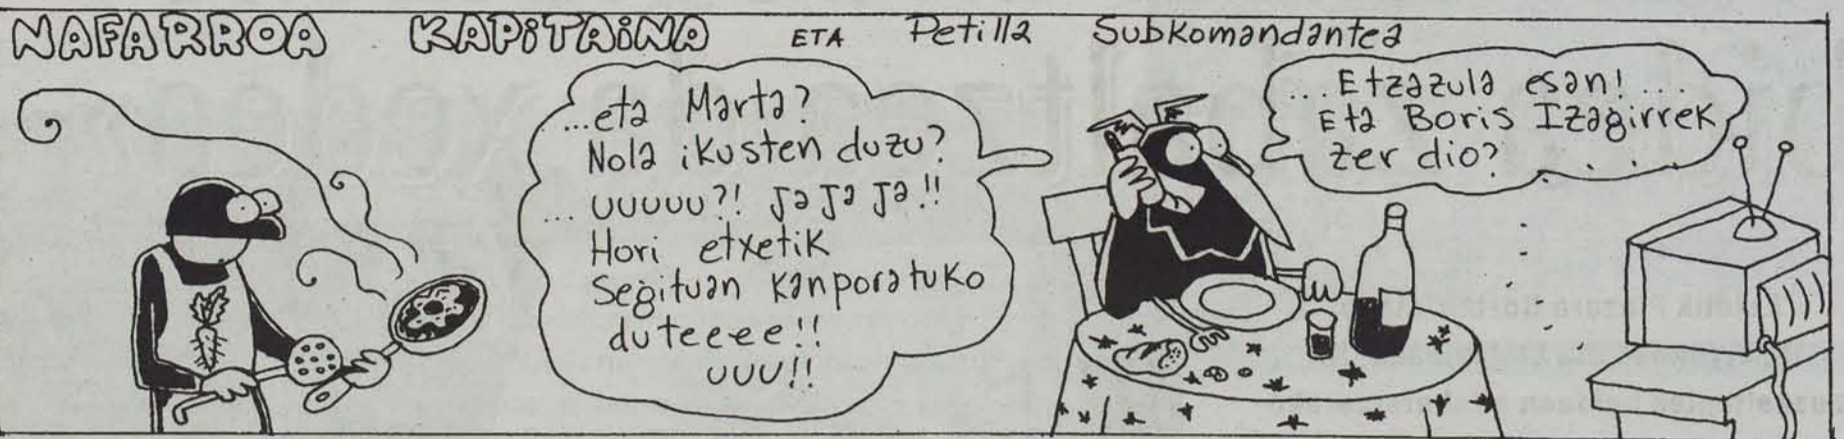 NAFARROA KAPiTAiNA ETA Petilla Subkomandantea
...eta Marta?
Nola ikusten duzu?
... uuuuu?! Ja Ja Ja!!
Hori etxetik
Segituan kanporatuko
duteeee!!
uuu!!
... Etzazula esan! ...
Eta Boris Izagirrek
zer dio? . . .